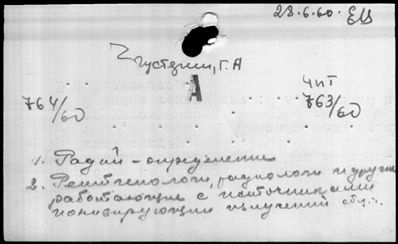 28.6.60.
Густерин, Г.А
А
ЧИТ
764/60
763/60
1. Радий - определение
2. Рентгенологи, радиологи и другие
работающие с источниками
ионизирующих излучений общ.